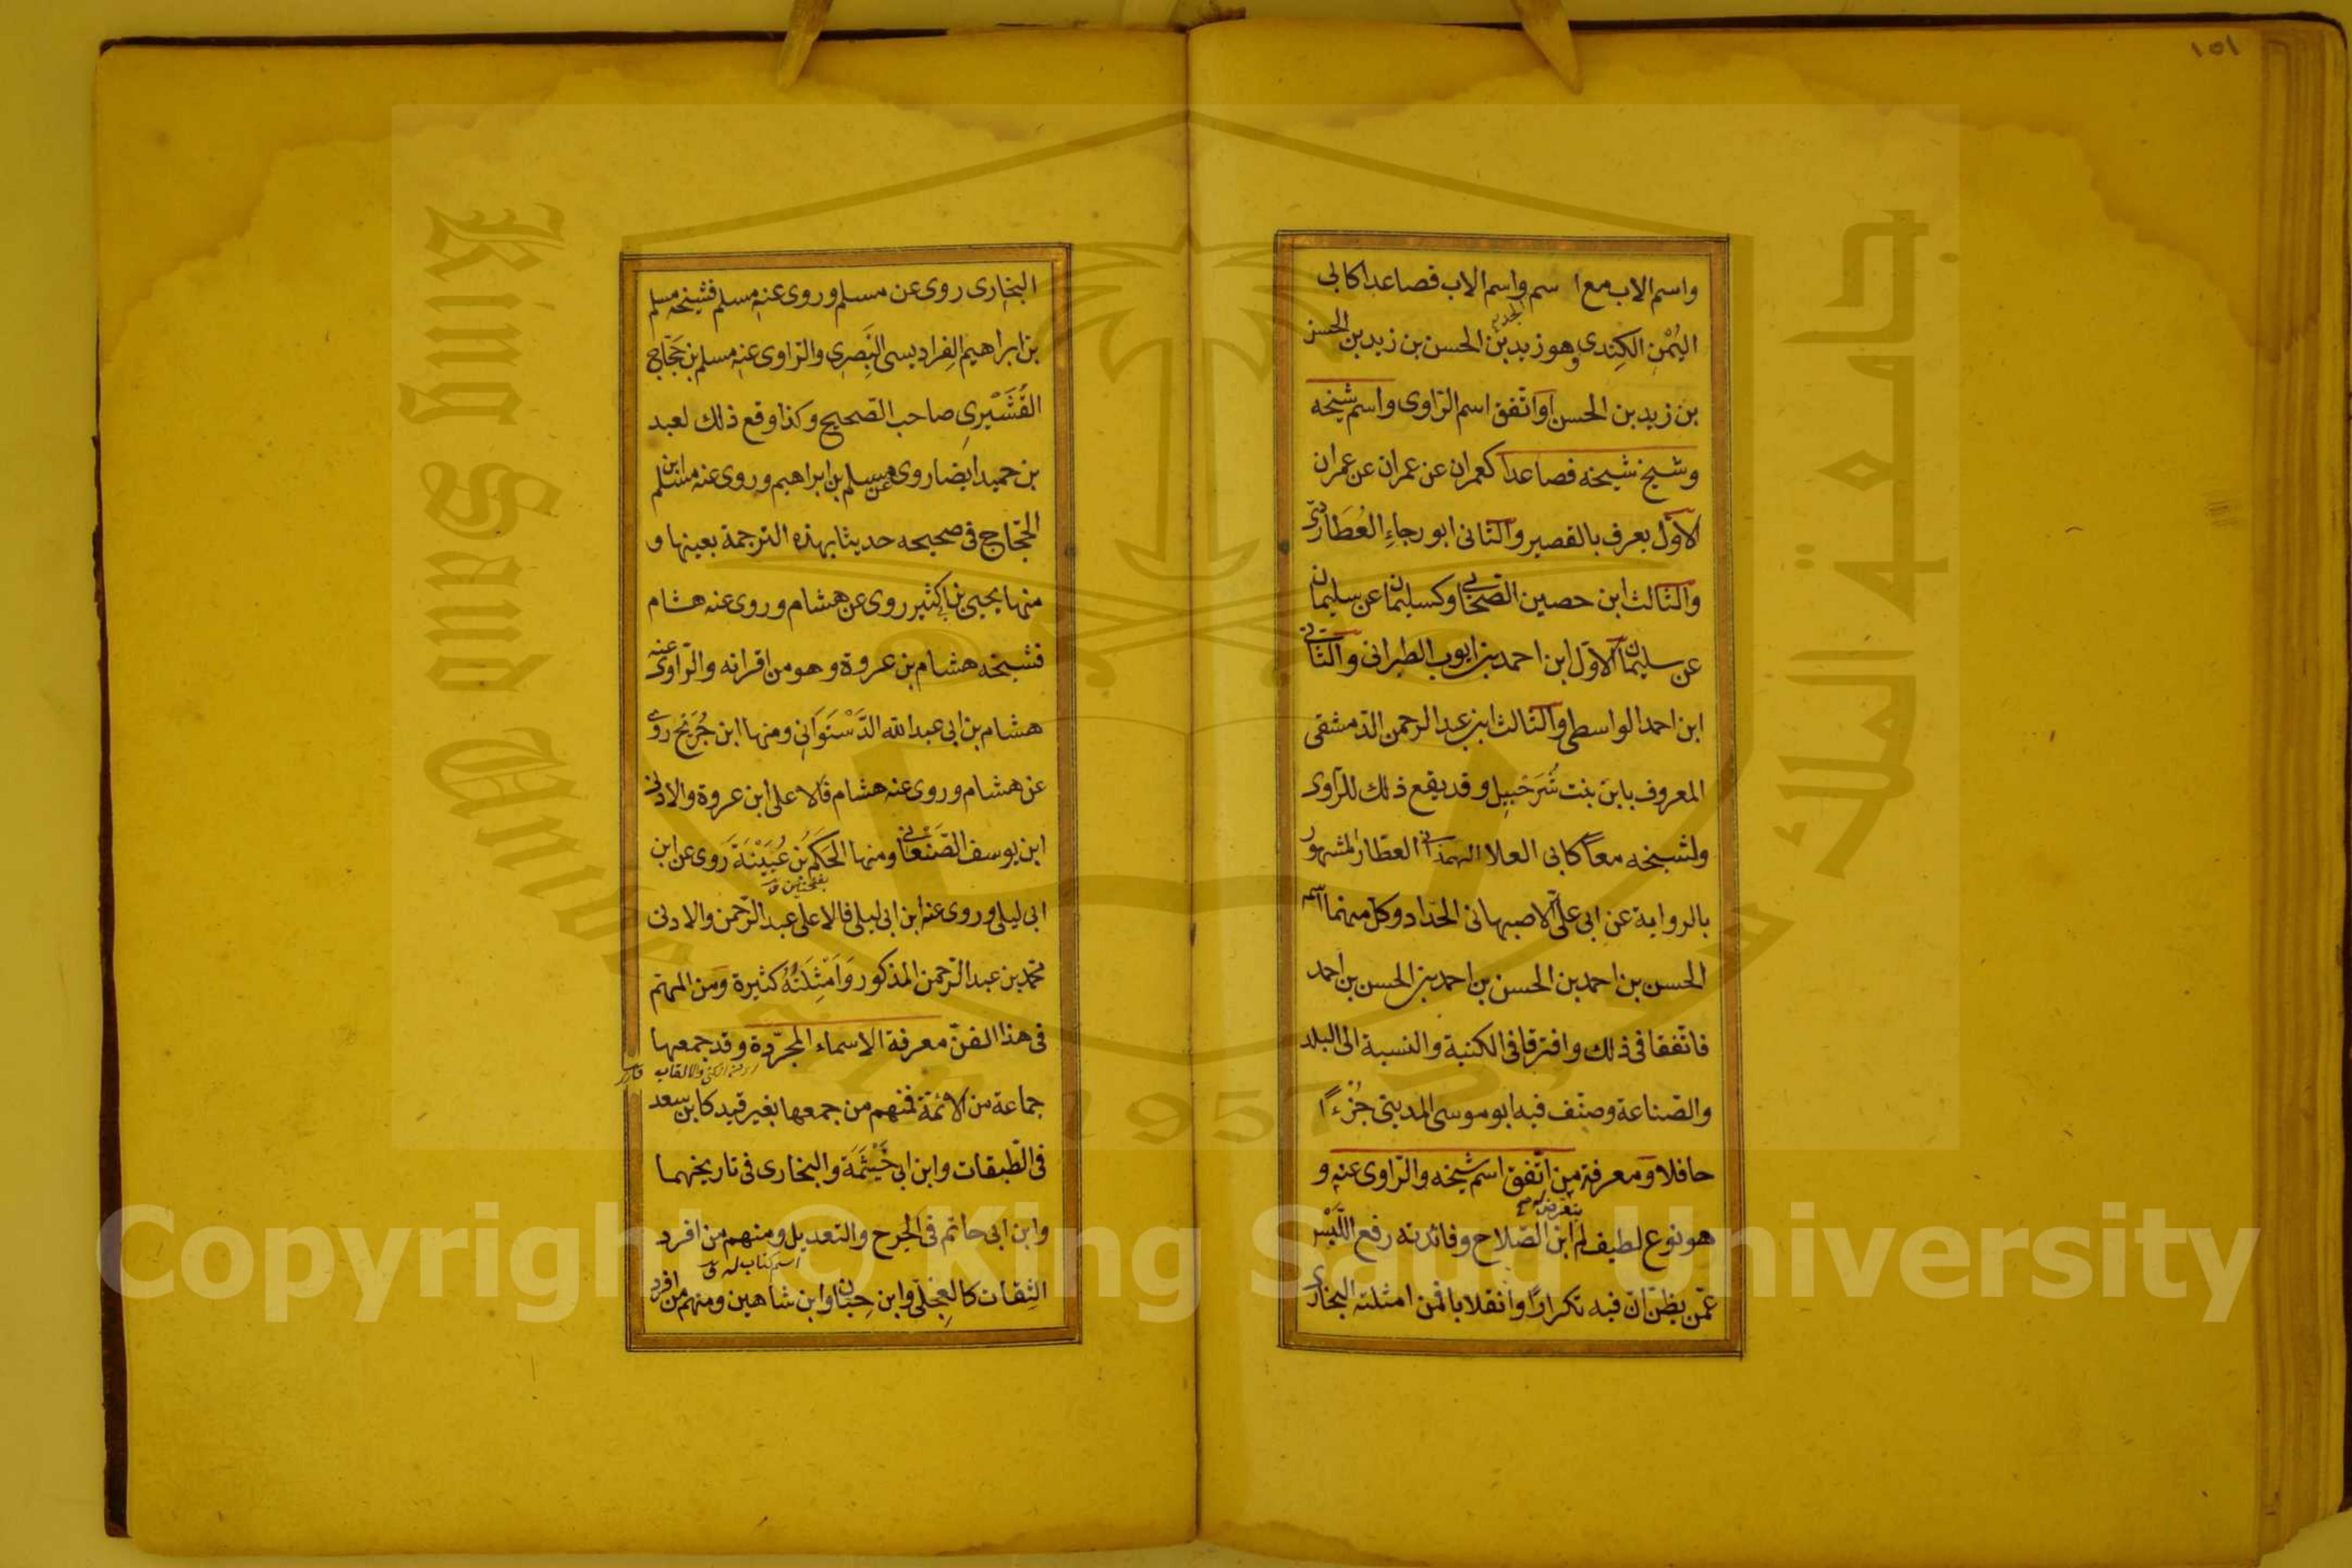 ١٥١
واسم الاب مع اسم واسم الاب فصاعدا كابى
اليُمْنِ الكِندى وهو زيد بن الحسن بن زيد بن الحسن
بن زيد بن الحسن اواتّفق اسم الرّاوى واسم شيخه
وشيخ شيخه فصاعدا كعمران عن عمران عن عمران
الاوّل يعرف بالقصير والثانى ابو رجاءِ العُطَاردىّ
والثالث ابن حصين الصّحابى وكسليمان عن سليمان
عن سليمان الاوّل ابن احمد بن ايوب الطبرانى والثانى
ابن احمد الواسطى والثالث ابن عبد الرحمن الدّمشقى
المعروف بابن بنت شُرَحْبِيل وقد يقع ذلك للرّاوى
ولشيخه معاً كابى العلا الهمدانى العطّار المشهور
بالرواية عن ابى علىّ الاصبهانى الحدّاد وكلّ منهما اسمه
الحسن بن احمد بن الحسن بن احمد بن الحسن بن احمد
فاتفقا فى ذلك وافترقا فى الكنية والنسبة الى البلد
والصّناعة وصنّف فيه ابو موسى المدينى جُزْءًا
حافلا ومعرفة من اتّفق اسم شيخه والرّاوى عنه و
هو نوع لطيف لم يتعرض له ابن الصّلاح وفائدته رفع اللَّبْس
عمّن يظنّ انّ فيه تكرارًا وانقلابا فمن امثلته البخارى
البخارى روى عن مسلم وروى عنه مسلم فشيخه مسلم
بن ابراهيم الفراديسى البَصرى والرّاوى عنه مسلم بن حَجّاج
القُشَيْرِى صاحب الصّحيح وكذا وقع ذلك لعبد
بن حميد ايضا روى عن مسلم بن ابراهيم وروى عنه مسلم ابن
الحجّاج فى صحيحه حديثا بهذه الترجمة بعينها و
منها يحيى بن ابى كثير روى عن هشام وروى عنه هشام
فشيخه هشام بن عروة وهو من اقرانه والرّاوى عنه
هشام بن ابى عبد الله الدَّسْتَوَانِى ومنها ابن جُرَيْج روى
عن هشام وروى عنه هشام فالاعلى ابن عروة والادنى
ابن يوسف الصَّنْعَانى ومنها الحَكَم بن عُيَيْنَة روى عن ابن
بفتحتين
ابى ليلى وروى عنه ابن ابى ليلى فالاعلى عبد الرّحمن والادنى
محمّد بن عبد الرّحمن المذكور وَاَمْثِلَتُهُ كثيرة ومن المهمّ
فى هذا الفنّ معرفة الاسماء المجرّدة وقد جمعها
جماعة من الائمّة فمنهم من جمعها بغير قيد كابن سعد
فى الطّبقات وابن ابى خَيْثَمَة والبخارى فى تاريخهما
وابن ابى حاتم فى الجَرح والتعديل ومنهم من افرد
اسم كتاب له
الثِقات كالعِجلى وابن حِبّان وابن شاهين ومنهم من افرد
King Saud University
جامعة الملك سعود
1957
Copyright © King Saud University